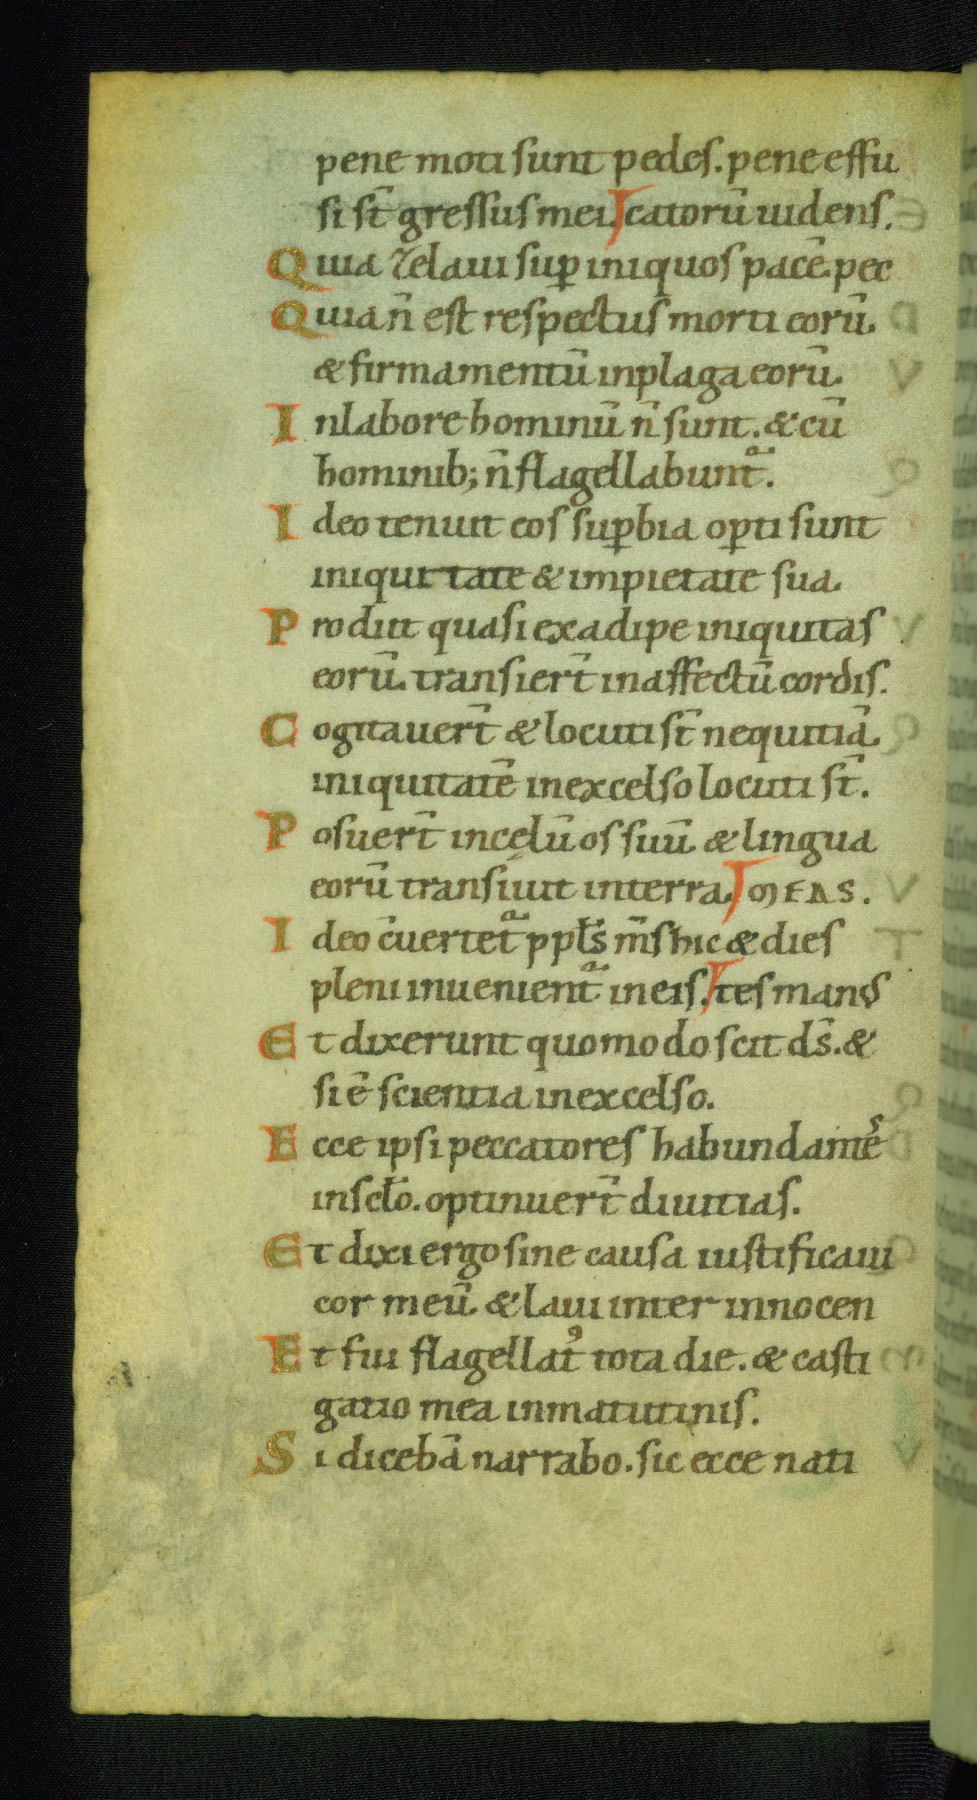 pene moti sunt pedes. pene effu
si st̄ gressus mei. catorū uidens.
Quia zelaui sup̄ iniquos pacē pec
Quia n̄ est respectus morti eorū.
& firmamentū inplaga eorū.
Inlabore hominū n̄ sunt. & cū
hominib; n̄ flagellabunt᷒.
Ideo tenuit eos sup̄bia op̄ti sunt
iniquitate & impietate sua.
Prodiit quasi exadipe iniquitas
eorū. transiert̄ inaffectū cordis.
Cogitauert̄ & locuti st̄ nequitiā.
iniquitatē inexcelso locuti st̄.
Posuert̄ incęlū os suū. & lingua
eorū transiuit interra. MEAS.
Ideo c̄uertet᷒ ppl̄s m̄s hic & dies
pleni inuenient᷒ ineis. tes manus
Et dixerunt quomodo scit ds̄. &
si ē scientia inexcelso.
Ecce ipsi peccatores habundantēs
inscl̄o. optinuert̄ diuitias.
Et dixi ergo sine causa iustificaui
cor meū. & laui inter innocen
Et fui flagellatꝰ tota die. & casti
gatio mea inmatutinis.
Si dicebā narrabo. sic ecce nati